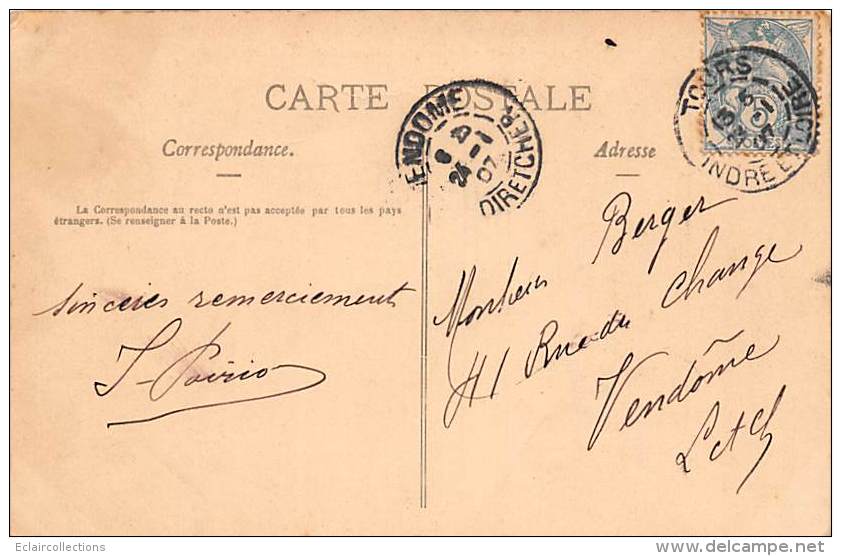 CARTE POSTALE
Correspondance.
Adresse
La Correspondance au recto n'est pas acceptée par tous les pays
étrangers. (Se renseigner à la Poste.)
sincères remerciements
Monsieur Berger
41 Rue du Change
Vendôme
L et Ch
ENDOME
24
07
OIR ET CHER
TOURS
INDRE ET LOIRE
POSTES
Eclaircollections
www.delcampe.net